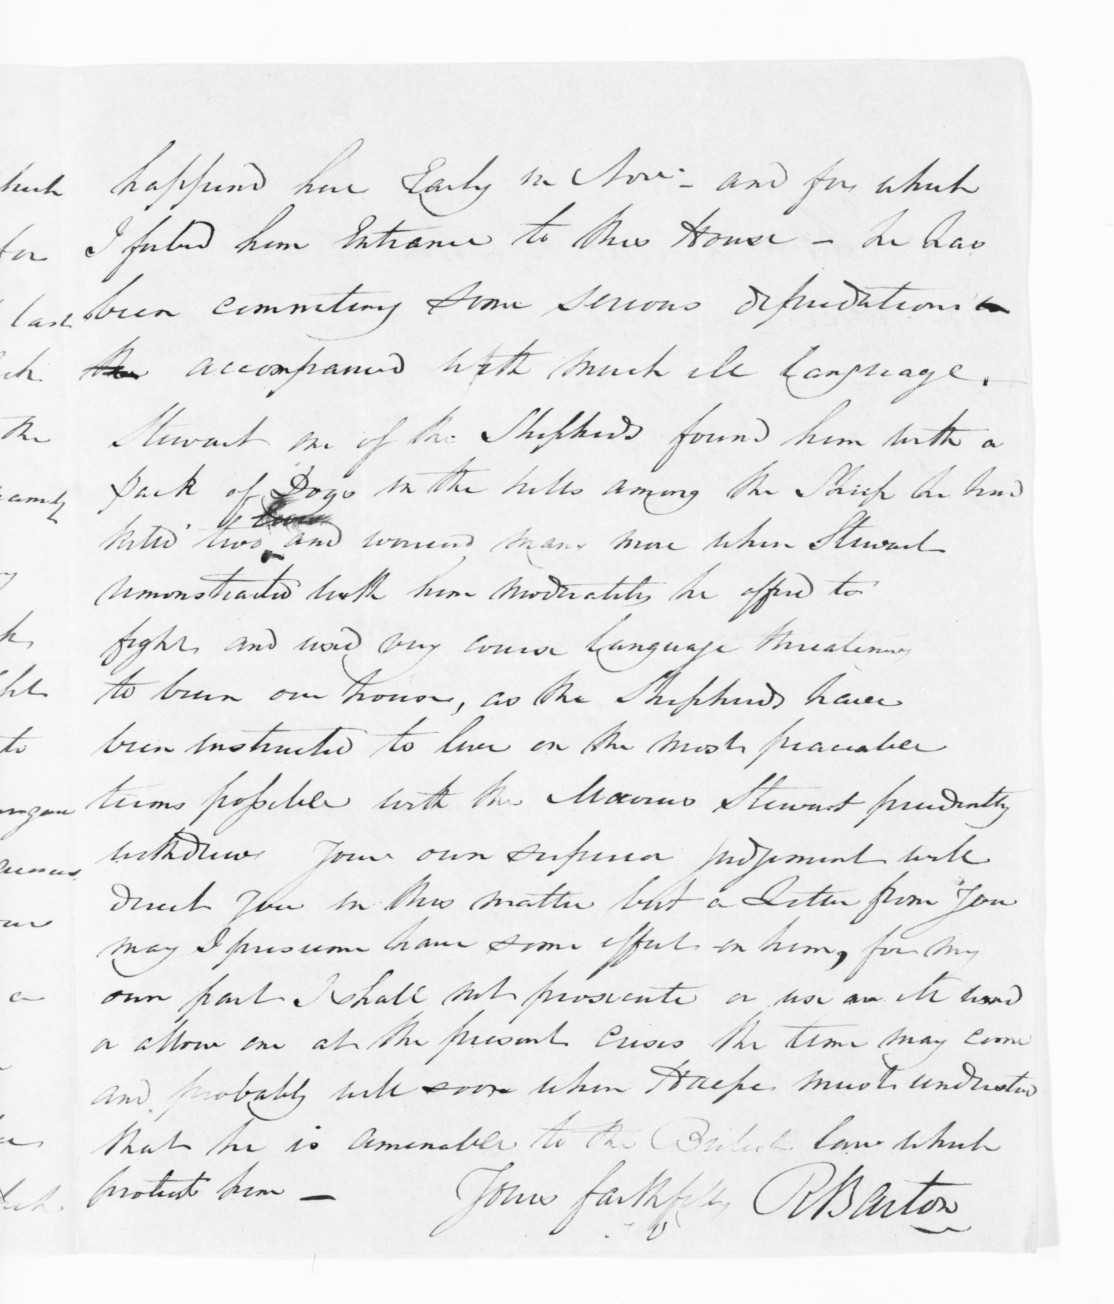 happend here Early in Novr - and for which
I forbid him Entrance to this House - he has
been committing some serious depredations
accompanied with much ill language.
Stewart one of the Shepherds found him with a
pack of Dogs in the hills among the Sheep he had
killd two and worried many more when Stewart
remonstrated with him moderately he offred to
fight and used very coarse language threatening
to burn our house, as the Shepherds have
been instructed to live on the most peaceable
terms possible with the Maories Stewart prudently
withdrew your own superior judgement will
direct you in this matter but a Letter from you
may I presume have some effect on him, for my
own part I shall not prosecute or use an ill word
or allow one at the present crisis the time may come
and probably will soon when must understand
that he is amenable to the British law which
protects him -
Yours faithfully R Barton
which
for
last
the
to
our
a